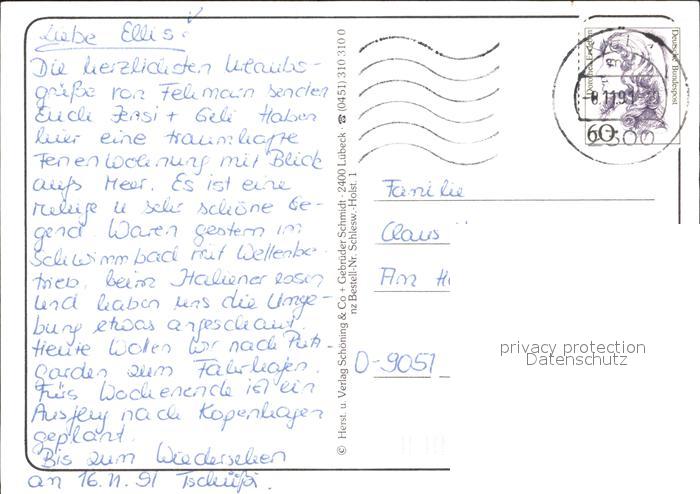 Liebe Ellis!
Die herzlichsten Urlaubs-
grüße von Fehmarn senden
Euch Jensi + Geli Haben
hier eine traumhafte
Ferienwohnung mit Blick
aufs Meer. Es ist eine
ruhige u sehr schöne Ge-
gend. Waren gestern im
Schwimmbad mit Wellenbe-
trieb, beim Italiener essen
und haben uns die Umge-
bung etwas angeschaut.
Heute wollen wir nach Putt-
garden zum Fährhafen.
Fürs Wochenende ist ein
Ausflug nach Kopenhagen
geplant.
Bis zum Wiedersehen
an 16.11.91 Tschüßi.
© Herst. u. Verlag Schöning & Co + Gebrüder Schmidt · 2400 Lübeck · ☎ (0451) 310 310 0
nz Bestell-Nr. Schlesw.-Holst. 1
Deutsche Bundespost
60
-8.11.91
Familie
Claus
Am H
D-9051
privacy protection
Datenschutz